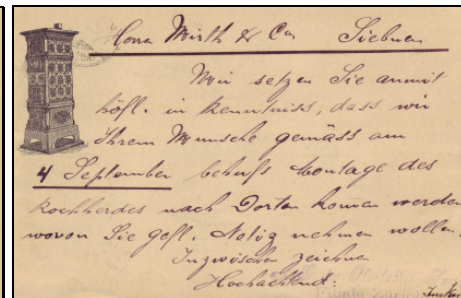 Wirth & Co Siebnen
Wir setzen Sie anmit
höfl. in Kenntniss, dass wir
Ihrem Wunsche gemäss am
4 September behufs Montage des
Kochherdes nach Dorten komen werden
wovon Sie gefl. Notiz nehmen wollen.
Inzwischen zeichne
Hochachtend: